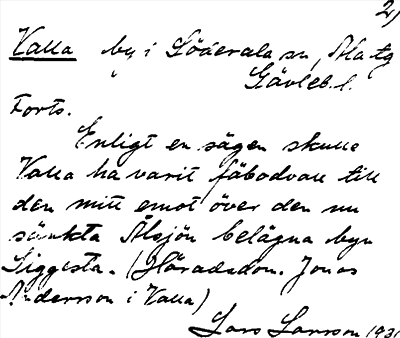 2)
Valla by i Söderala sn, Ala tg
Gävleb. l.
Forts.
Enligt en sägen skulle
Valla ha varit fäbodvall till
den mitt emot över den nu
sänkta Ålsjön belägna byn
Siggesta. (Häradsdom. Jonas
Andersson i Valla)
Lars Larsson 193